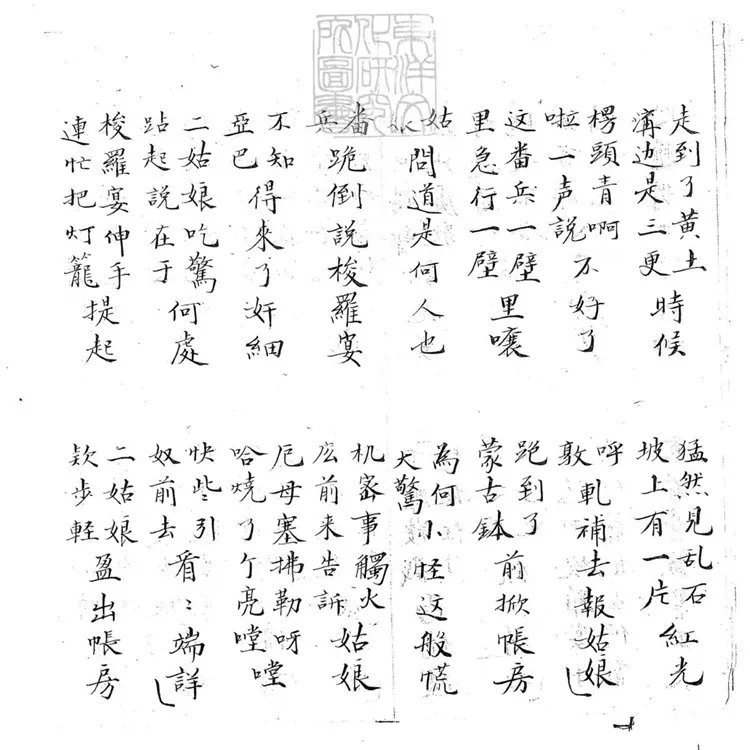 東洋文化研究所圖書
走到了黄土溝边是三更時候
猛然見乱石坡上有一片紅光
楞頭青啊啦一声說不好了
呼敦軋補去報姑娘
这番兵一壁里急行一壁里嚷
跑到了蒙古鉢前掀帳房
姑娘問道是何人也
為何大驚小怪这般慌
番兵跪倒說梭羅宴
机密事觸火庅前来告訴姑娘
不知亞巴得來了奸細
厄母塞拂勒呀哈燒了亇亮嘡嘡
二姑娘吃驚站起說在于何處
快些引奴前去看〻端詳
梭羅宴伸手連忙把灯籠提起
二姑娘欵步軽盈出帳房